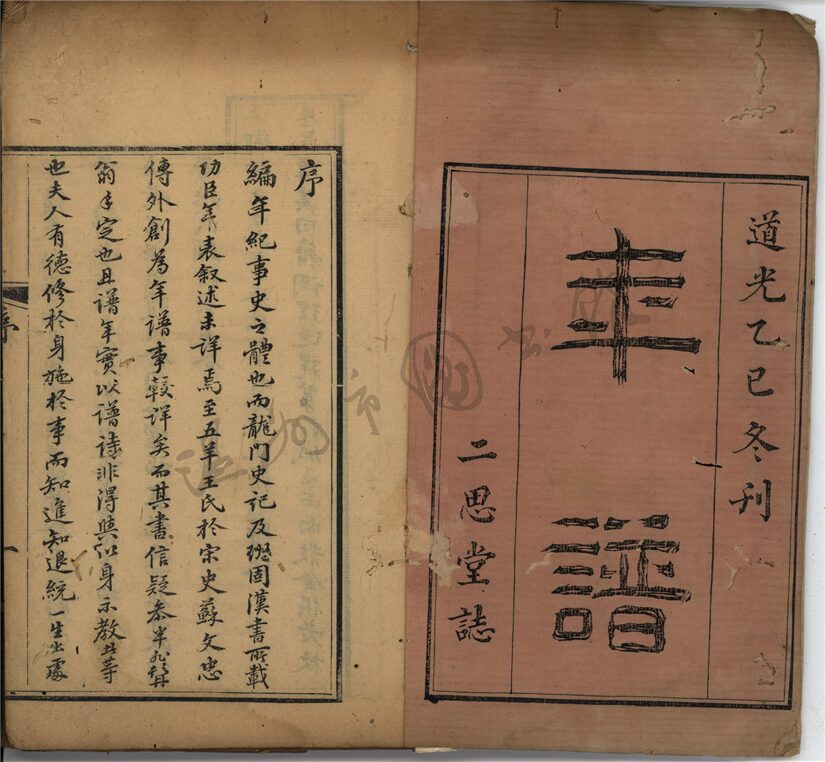 道光乙巳冬刊
年譜
二思堂誌
序
編年紀事史之體也而龍門史記及班固漢書所載
功臣年表叙述未詳焉至五羊王氏於宋史蘇文忠
傳外創為年譜事較詳矣而其書信疑叅半
翁手定也且譜年實以譜詩非得與以身示教等
也夫人有德修於身施於事而知進知退統一生出處
序
一